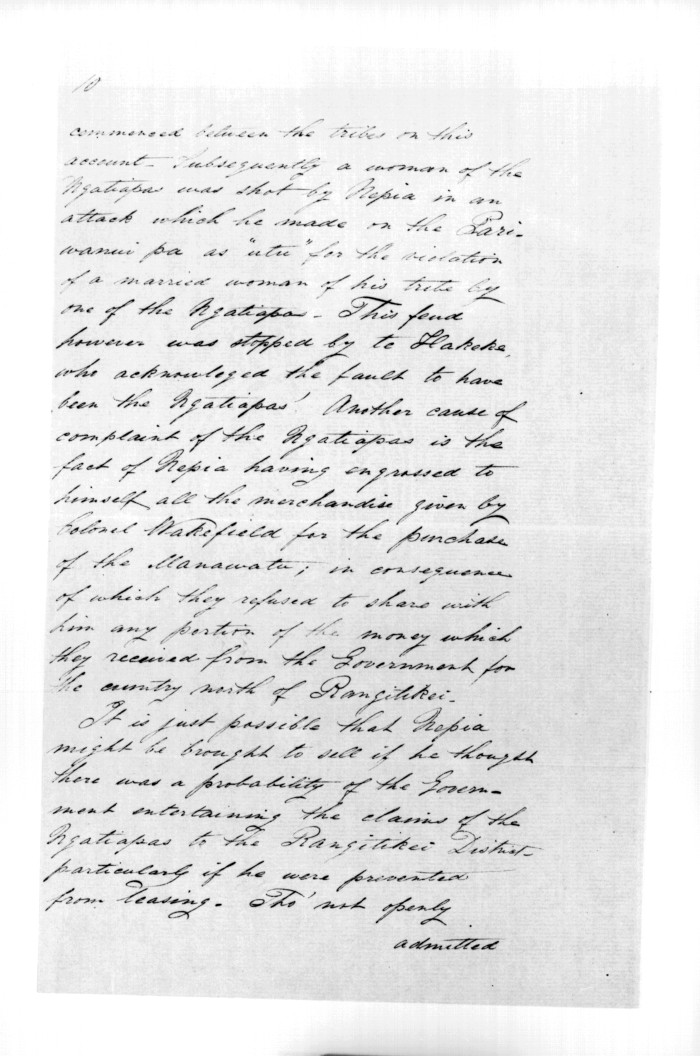 10
commenced between the tribes on this
account. Subsequently a woman of the
Ngatiapas was shot by Nepia in an
attack which he made on the Pari-
wanui pa as "utu" for the violation
of a married woman of his tribe by
one of the Ngatiapas. This feud
however was stopped by te Hakeke,
who acknowleged the fault to have
been the Ngatiapas'. Another cause of
complaint of the Ngatiapas is the
fact of Nepia having engrossed to
himself all the merchandise given by
Colonel Wakefield for the purchase
of the Manawatu; in consequence
of which they refused to share with
him any portion of the money which
they received from the Government for
the country north of Rangitikei.
It is just possible that Nepia
might be brought to sell if he thought
there was a probability of the Govern-
ment entertaining the claims of the
Ngatiapas to the Rangitikei District-
particularly if he were prevented
from leasing. Tho' not openly
admitted